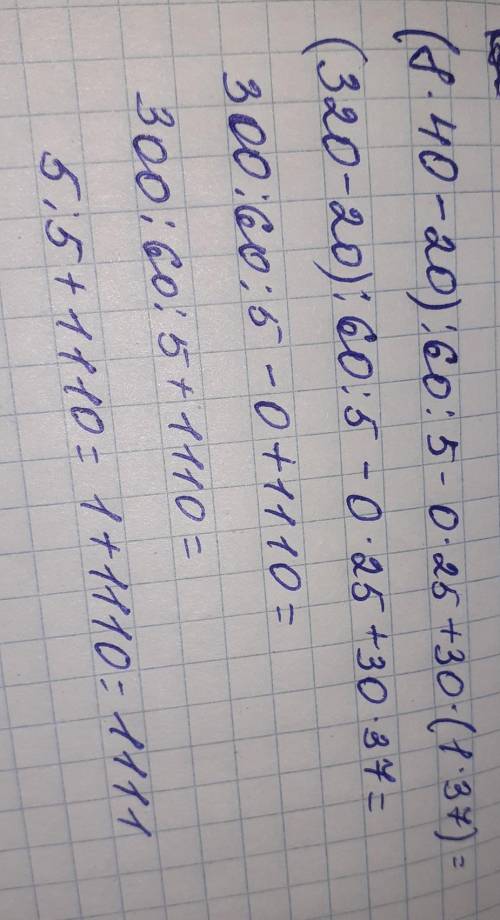 (8·40-20):60:5-0·25+30·(1·37)=
(320-20):60:5-0·25+30·37=
300:60:5-0+1110=
300:60:5+1110=
5:5+1110=1+1110=1111